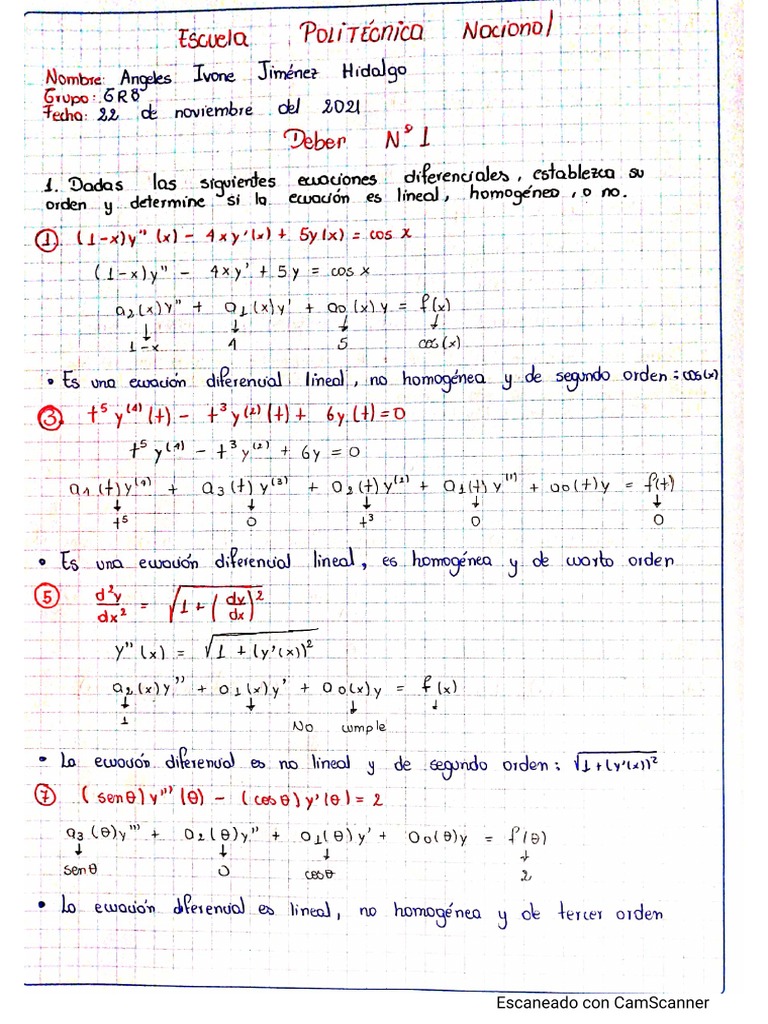 Escuela Politécnica Nacional
Nombre: Angeles Ivone Jiménez Hidalgo
Grupo: GR8
Fecha: 22 de noviembre del 2021
Deber N° 1
1. Dadas las siguientes ecuaciones diferenciales, establezca su
orden y determine si la ecuación es lineal, homogéneo, o no.
① (1-x)y"(x) - 4xy'(x) + 5y(x) = cos x
(1-x)y" - 4xy' + 5y = cos x
a2(x)y" + a1(x)y' + a0(x)y = f(x)
↓ ↓ ↓ ↓
1-x 4 5 cos(x)
• Es una ecuación diferencial lineal, no homogénea y de segundo orden: cos(x)
③ t⁵y⁽⁴⁾(t) - t³y⁽²⁾(t) + 6y(t) = 0
t⁵y⁽⁴⁾ - t³y⁽²⁾ + 6y = 0
a4(t)y⁽⁴⁾ + a3(t)y⁽³⁾ + a2(t)y⁽²⁾ + a1(t)y⁽¹⁾ + a0(t)y = f(t)
↓ ↓ ↓ ↓ ↓
t⁵ 0 t³ 0 0
• Es una ecuación diferencial lineal, es homogénea y de cuarto orden
⑤ d²y/dx² = √(1+(dy/dx)²)
y"(x) = √(1+(y'(x))²)
a2(x)y" + a1(x)y' + a0(x)y = f(x)
↓ ↓ ↓ ↓
1 No cumple
• La ecuación diferencial es no lineal y de segundo orden: √(1+(y'(x))²)
⑦ (senθ)y'''(θ) - (cosθ)y'(θ) = 2
a3(θ)y''' + a2(θ)y" + a1(θ)y' + a0(θ)y = f(θ)
↓ ↓ ↓ ↓
senθ 0 cosθ 2
• La ecuación diferencial es lineal, no homogénea y de tercer orden
Escaneado con CamScanner